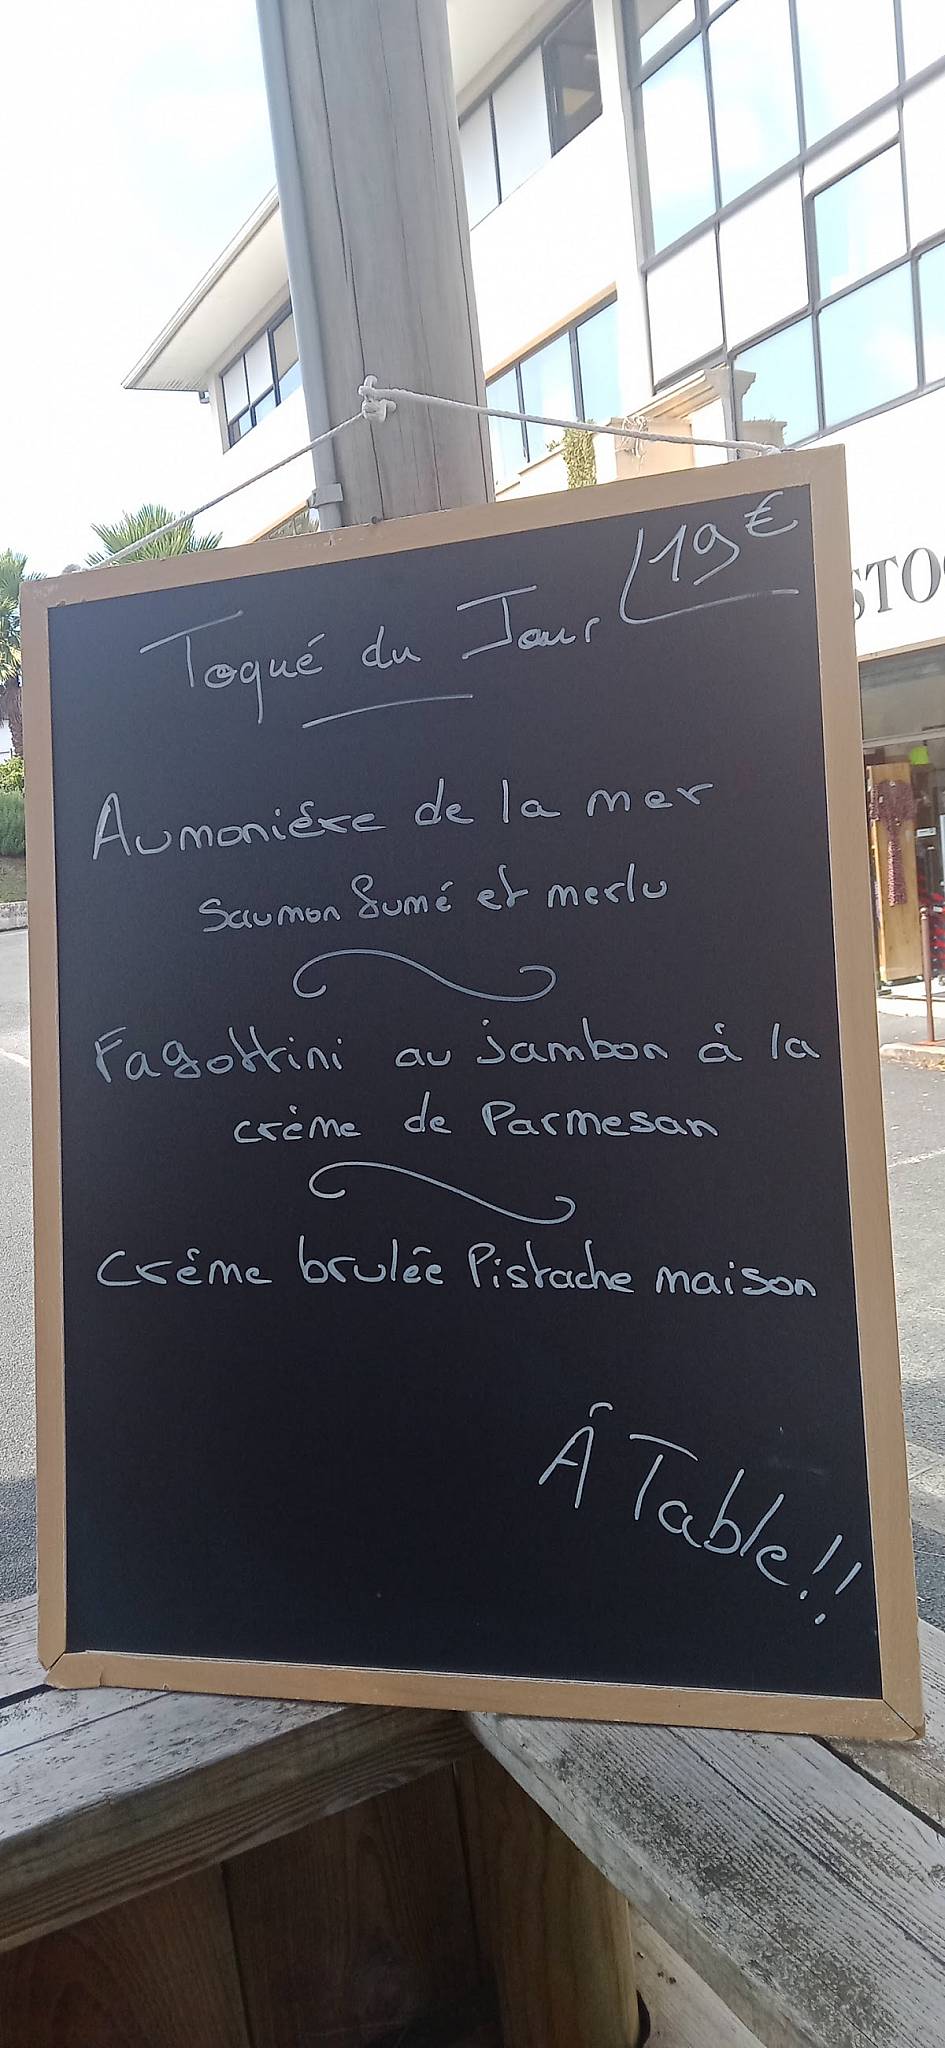 19€
Toqué du Jour
Aumonière de la mer
saumon fumé et merlu
Fagottini au jambon à la
crème de Parmesan
Crème brulée Pistache maison
À Table!!
STO